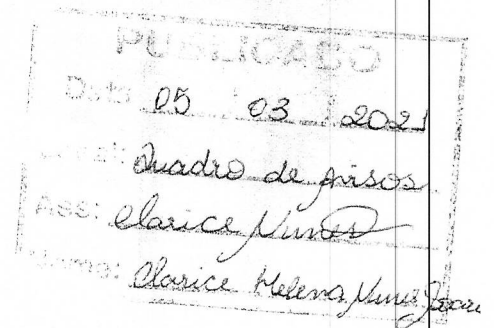 PUBLICADO
Data 05 03 2021
Quadro de Avisos
Ass: Clarice Nunes
Clarice Helena Nunes